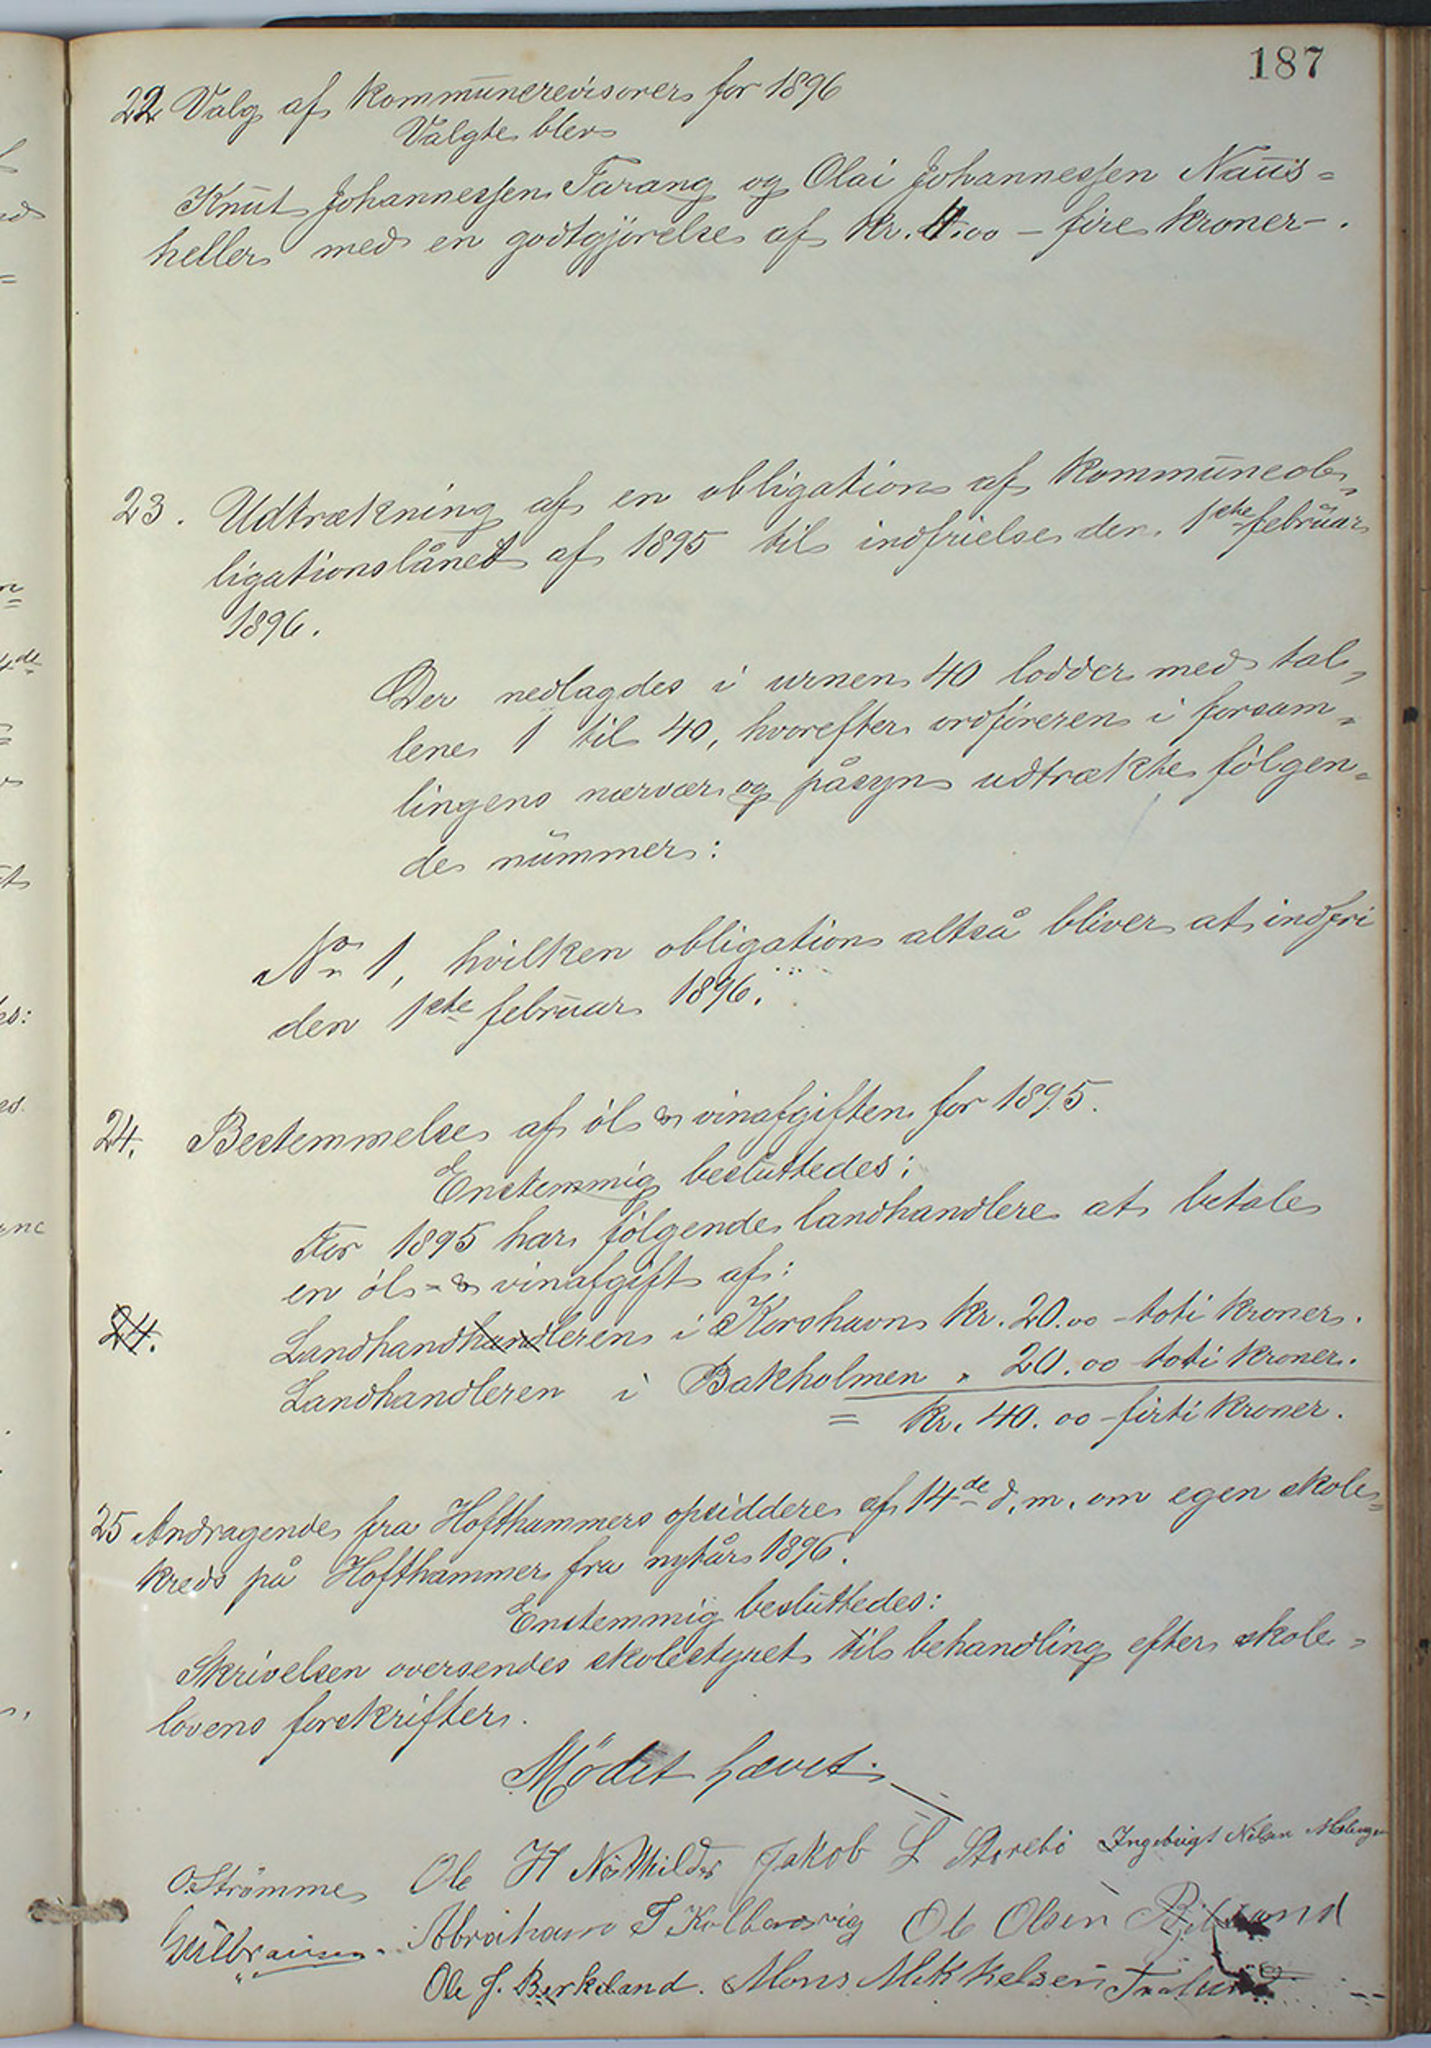 187
22. Valg af kommunerevisorer for 1896
Valgte blev
Knut Johannessen Tarang og Olai Johannessen Naus=
heller med en godtgjørelse af kr. 4.00 – fire kroner –.
23. Udtrækning af en obligation af kommuneob=
ligationslånet af 1895 til indfrielse den 1ste februar
1896.
Der nedlagdes i urnen 40 lodder med tal=
lene 1 til 40, hvorefter ordføreren i forsam=
lingens nærvær og påsyn udtrækte følgen=
de nummer:
No 1, hvilken obligation altså bliver at indfri
den 1ste februar 1896.
24. Bestemmelse af øl & vinafgiften for 1895.
Enstemmig besluttedes:
For 1895 har følgende landhandlere at betale
en øl- & vinafgift af:
24. Landhandhandleren i Korshavn kr. 20.00 – toti kroner.
Landhandleren i Bakholmen " 20.00 toti kroner.
= kr. 40.00 – firti kroner.
25 Andragende fra Hofthammers opsiddere af 14de d.m. om egen skole=
kreds på Hofthammer fra nytår 1896.
Enstemmig besluttedes:
Skrivelsen oversendes skolestyret til behandling efter skole=
lovens forskrifter.
Mødet hævet.
O. Strömme Ole H Jakob L Storebö Ingebrigt Nilsen
Abraham T Kolbensvig Ole Olsen
Ole J. Birkeland. Mons Mikkelsen